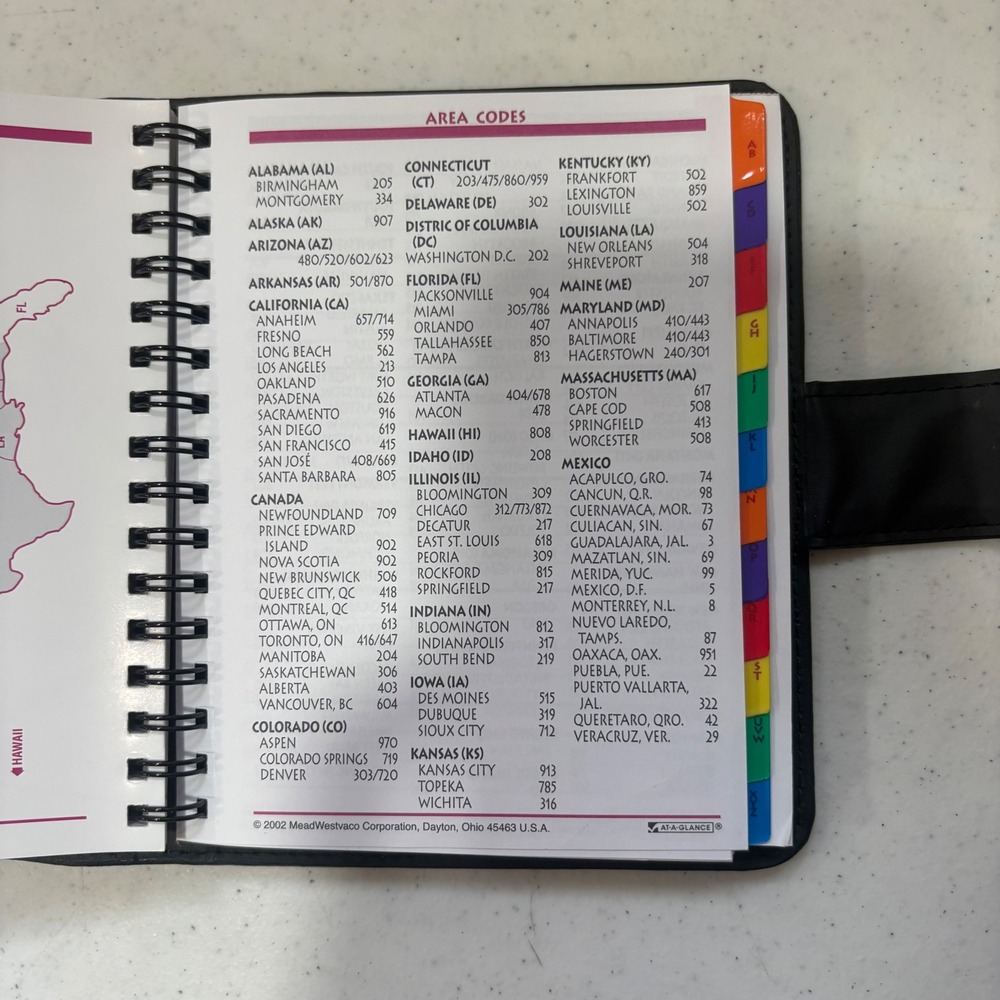 FL
CA
HAWAII
AREA CODES
ALABAMA (AL)
BIRMINGHAM 205
MONTGOMERY 334
ALASKA (AK) 907
ARIZONA (AZ)
480/520/602/623
ARKANSAS (AR) 501/870
CALIFORNIA (CA)
ANAHEIM 657/714
FRESNO 559
LONG BEACH 562
LOS ANGELES 213
OAKLAND 510
PASADENA 626
SACRAMENTO 916
SAN DIEGO 619
SAN FRANCISCO 415
SAN JOSÉ 408/669
SANTA BARBARA 805
CANADA
NEWFOUNDLAND 709
PRINCE EDWARD
ISLAND 902
NOVA SCOTIA 902
NEW BRUNSWICK 506
QUEBEC CITY, QC 418
MONTREAL, QC 514
OTTAWA, ON 613
TORONTO, ON 416/647
MANITOBA 204
SASKATCHEWAN 306
ALBERTA 403
VANCOUVER, BC 604
COLORADO (CO)
ASPEN 970
COLORADO SPRINGS 719
DENVER 303/720
CONNECTICUT
(CT) 203/475/860/959
DELAWARE (DE) 302
DISTRIC OF COLUMBIA
(DC)
WASHINGTON D.C. 202
FLORIDA (FL)
JACKSONVILLE 904
MIAMI 305/786
ORLANDO 407
TALLAHASSEE 850
TAMPA 813
GEORGIA (GA)
ATLANTA 404/678
MACON 478
HAWAII (HI) 808
IDAHO (ID) 208
ILLINOIS (IL)
BLOOMINGTON 309
CHICAGO 312/773/872
DECATUR 217
EAST ST. LOUIS 618
PEORIA 309
ROCKFORD 815
SPRINGFIELD 217
INDIANA (IN)
BLOOMINGTON 812
INDIANAPOLIS 317
SOUTH BEND 219
IOWA (IA)
DES MOINES 515
DUBUQUE 319
SIOUX CITY 712
KANSAS (KS)
KANSAS CITY 913
TOPEKA 785
WICHITA 316
KENTUCKY (KY)
FRANKFORT 502
LEXINGTON 859
LOUISVILLE 502
LOUISIANA (LA)
NEW ORLEANS 504
SHREVEPORT 318
MAINE (ME) 207
MARYLAND (MD)
ANNAPOLIS 410/443
BALTIMORE 410/443
HAGERSTOWN 240/301
MASSACHUSETTS (MA)
BOSTON 617
CAPE COD 508
SPRINGFIELD 413
WORCESTER 508
MEXICO
ACAPULCO, GRO. 74
CANCUN, Q.R. 98
CUERNAVACA, MOR. 73
CULIACAN, SIN. 67
GUADALAJARA, JAL. 3
MAZATLAN, SIN. 69
MERIDA, YUC. 99
MEXICO, D.F. 5
MONTERREY, N.L. 8
NUEVO LAREDO,
TAMPS. 87
OAXACA, OAX. 951
PUEBLA, PUE. 22
PUERTO VALLARTA,
JAL. 322
QUERETARO, QRO. 42
VERACRUZ, VER. 29
© 2002 MeadWestvaco Corporation, Dayton, Ohio 45463 U.S.A.
AT-A-GLANCE®
AB
CD
GH
KL
OP
QR
ST
UVW
XYZ